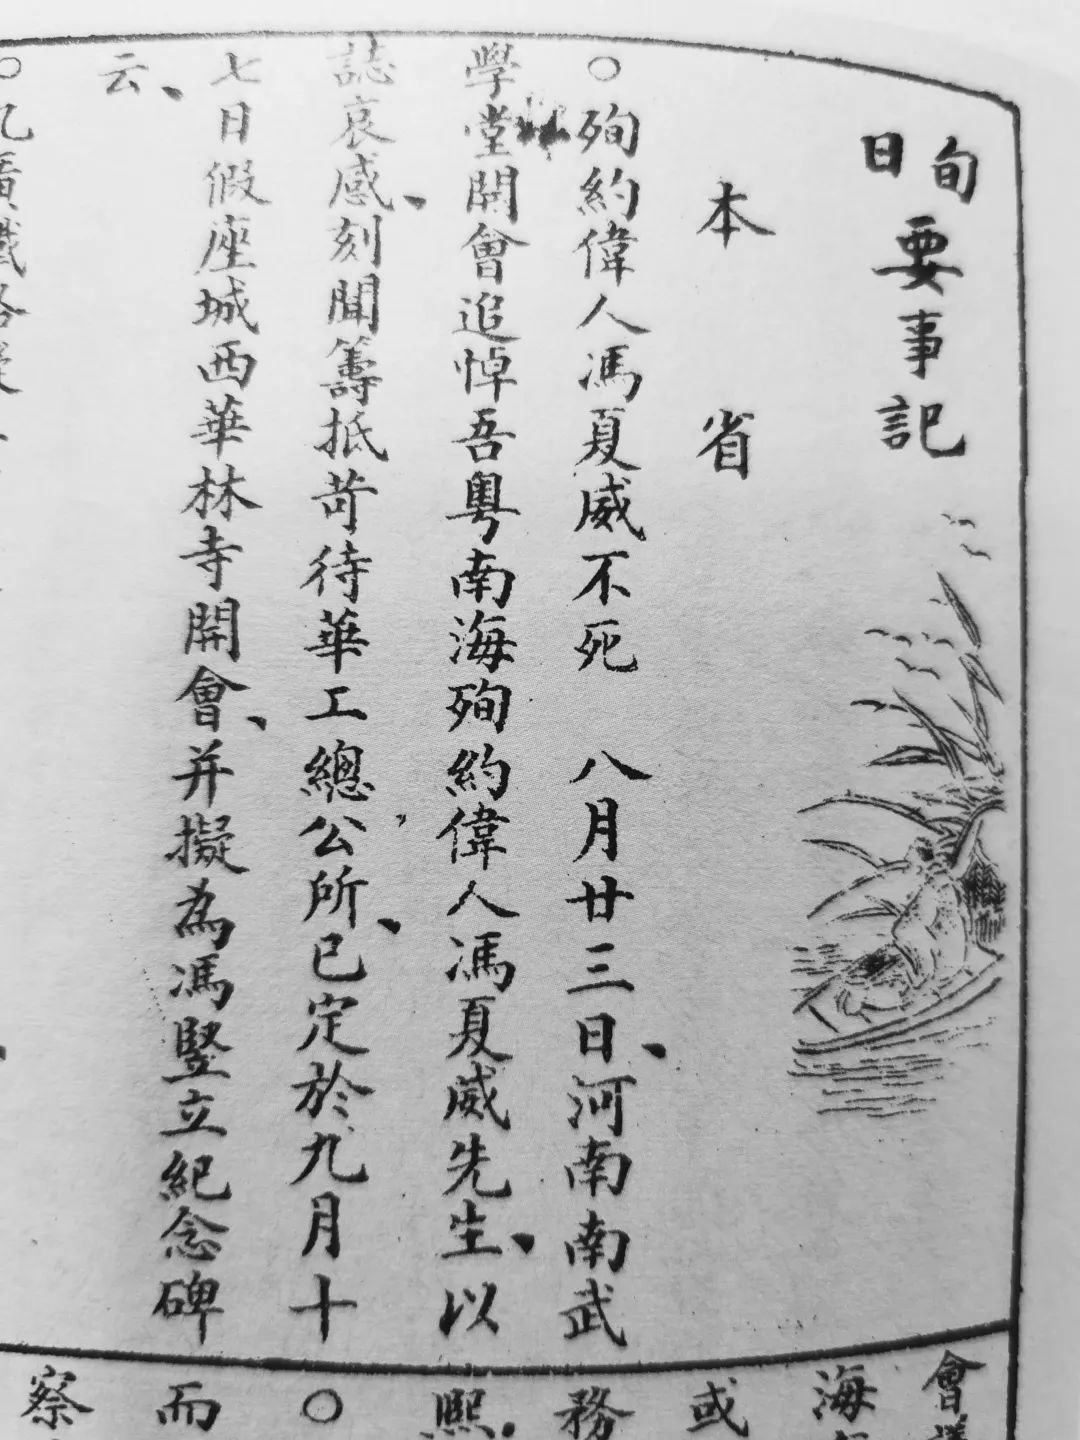 旬日要事記
本省
○殉約偉人馮夏威不死　八月廿三日、河南南武
學堂開會追悼吾粵南海殉約偉人馮夏威先生、以
誌哀感、刻聞籌抵苛待華工總公所、已定於九月十
七日假座城西華林寺開會、并擬為馮豎立紀念碑
云、
會
海
或
務
熙
○
而
察